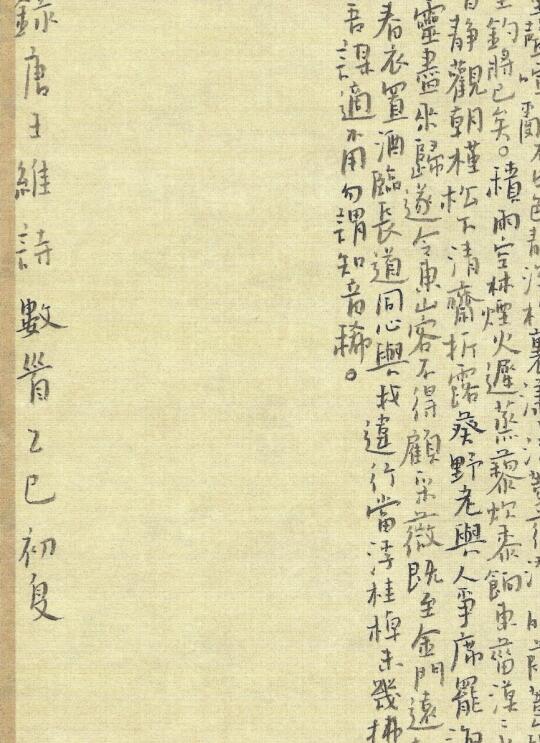 聲喧亂石中色靜深松裏
釣將已矣。積雨空林煙火遲蒸藜炊黍餉東菑漠〻
習靜觀朝槿松下清齋折露葵野老與人爭席罷海
靈盡來歸遂令東山客不得顧采薇既至金門遠
春衣置酒臨長道同心與我違行當浮桂棹未幾拂
吾謀適不用勿謂知音稀。
錄唐王維詩數首乙巳初夏